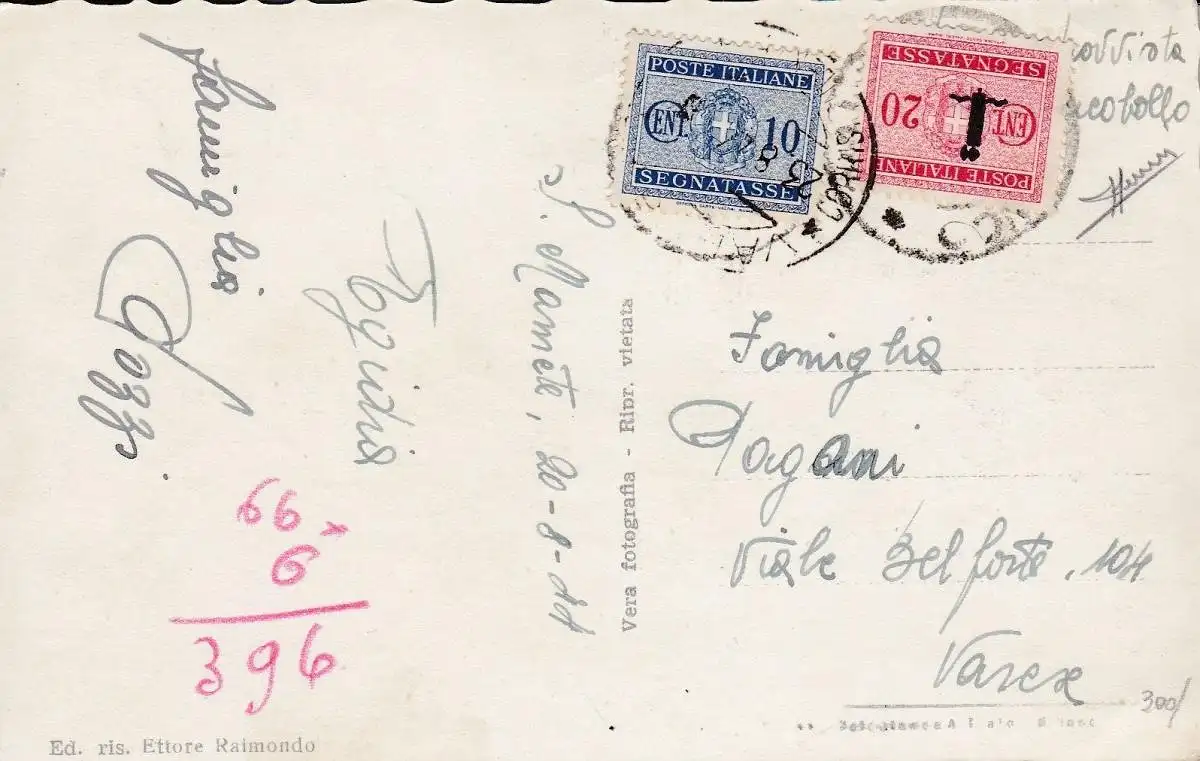 famiglia
Pozzi
Egidia
66 x
6
396
S. Mamete, 20-8-44
Vera fotografia - Ripr. vietata
Ed. ris. Ettore Raimondo
POSTE ITALIANE
CENT. 10
SEGNATASSE
SEGNATASSE
CENT. 20
POSTE ITALIANE
CORRISP
Famiglia
Pagani
Viale Belforte, 104
Varese
300/